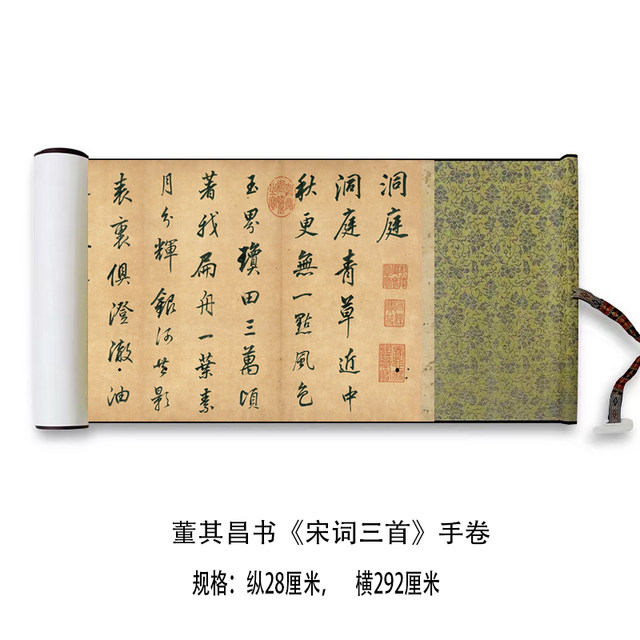 洞庭
洞庭青草近中
秋更無一點風色
玉界瓊田三萬頃
著我扁舟一葉素
月分輝銀河共影
表裏俱澄澈油
董其昌书《宋词三首》手卷
规格：纵28厘米， 横292厘米